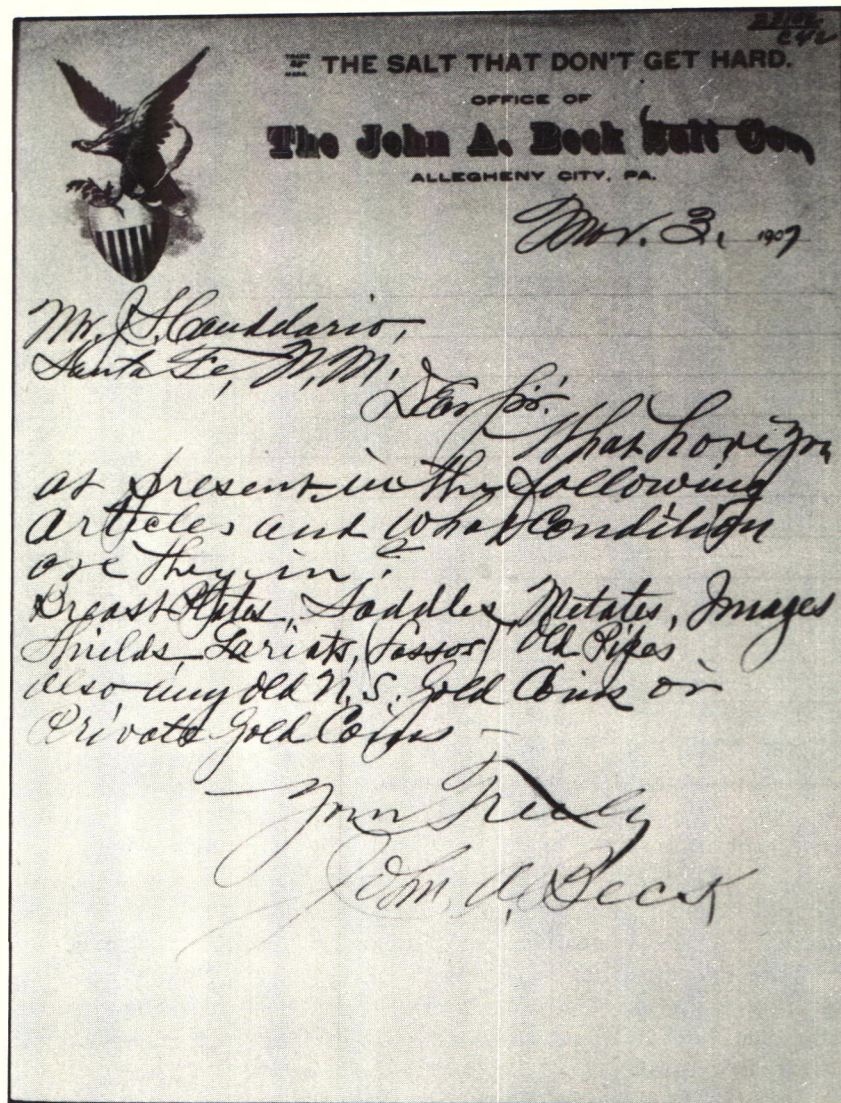 TRADE
OF
MARK
THE SALT THAT DON'T GET HARD.
OFFICE OF
The John A. Beck Salt Co.,
ALLEGHENY CITY, PA.
Nov. 3, 1907
Mr. J. S. Candelario,
Santa Fe, N. M.
Dear Sir:
What have you
at present in the following
articles and what condition
are they in?
Breast Plates, Saddles, Metates, Images
Shields, Lariats, (Lassos) Old Pipes
also any old U. S. Gold Coins or
Private Gold Coins –
Yours Truly
John A. Beck